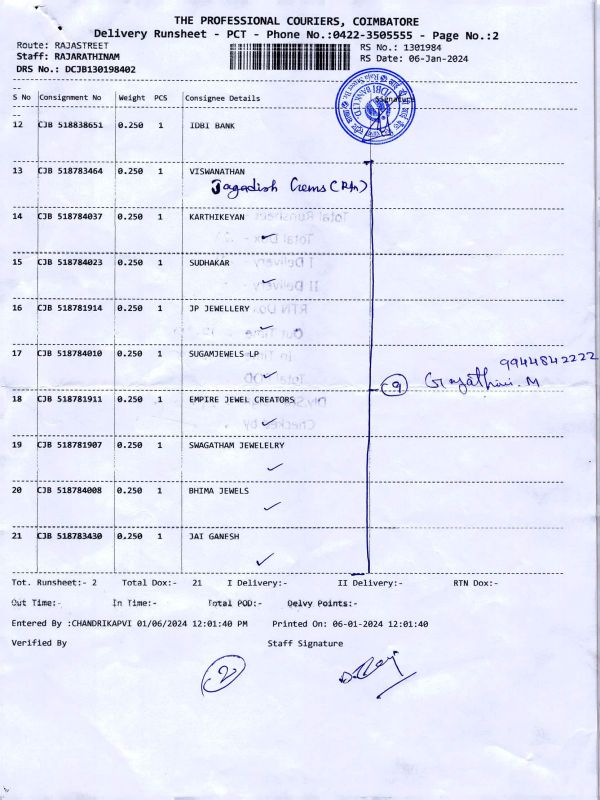 THE PROFESSIONAL COURIERS, COIMBATORE
Delivery Runsheet - PCT - Phone No.:0422-3505555 - Page No.:2
Route: RAJASTREET RS No.: 1301984
Staff: RAJARATHINAM RS Date: 06-Jan-2024
DRS No.: DCJB130198402
--
S No Consignment No Weight PCS Consignee Details Signature
--
12 CJB 518838651 0.250 1 IDBI BANK
13 CJB 518783464 0.250 1 VISWANATHAN
Jagadish Gems (Rn)
14 CJB 518784037 0.250 1 KARTHIKEYAN
15 CJB 518784023 0.250 1 SUDHAKAR
16 CJB 518781914 0.250 1 JP JEWELLERY
17 CJB 518784010 0.250 1 SUGAMJEWELS LP
9944842222
9 Gayathri. M
18 CJB 518781911 0.250 1 EMPIRE JEWEL CREATORS
19 CJB 518781907 0.250 1 SWAGATHAM JEWELELRY
20 CJB 518784008 0.250 1 BHIMA JEWELS
21 CJB 518783430 0.250 1 JAI GANESH
Tot. Runsheet:- 2 Total Dox:- 21 I Delivery:- II Delivery:- RTN Dox:-
Out Time:- In Time:- Total POD:- Delvy Points:-
Entered By :CHANDRIKAPVI 01/06/2024 12:01:40 PM Printed On: 06-01-2024 12:01:40
Verified By Staff Signature
2